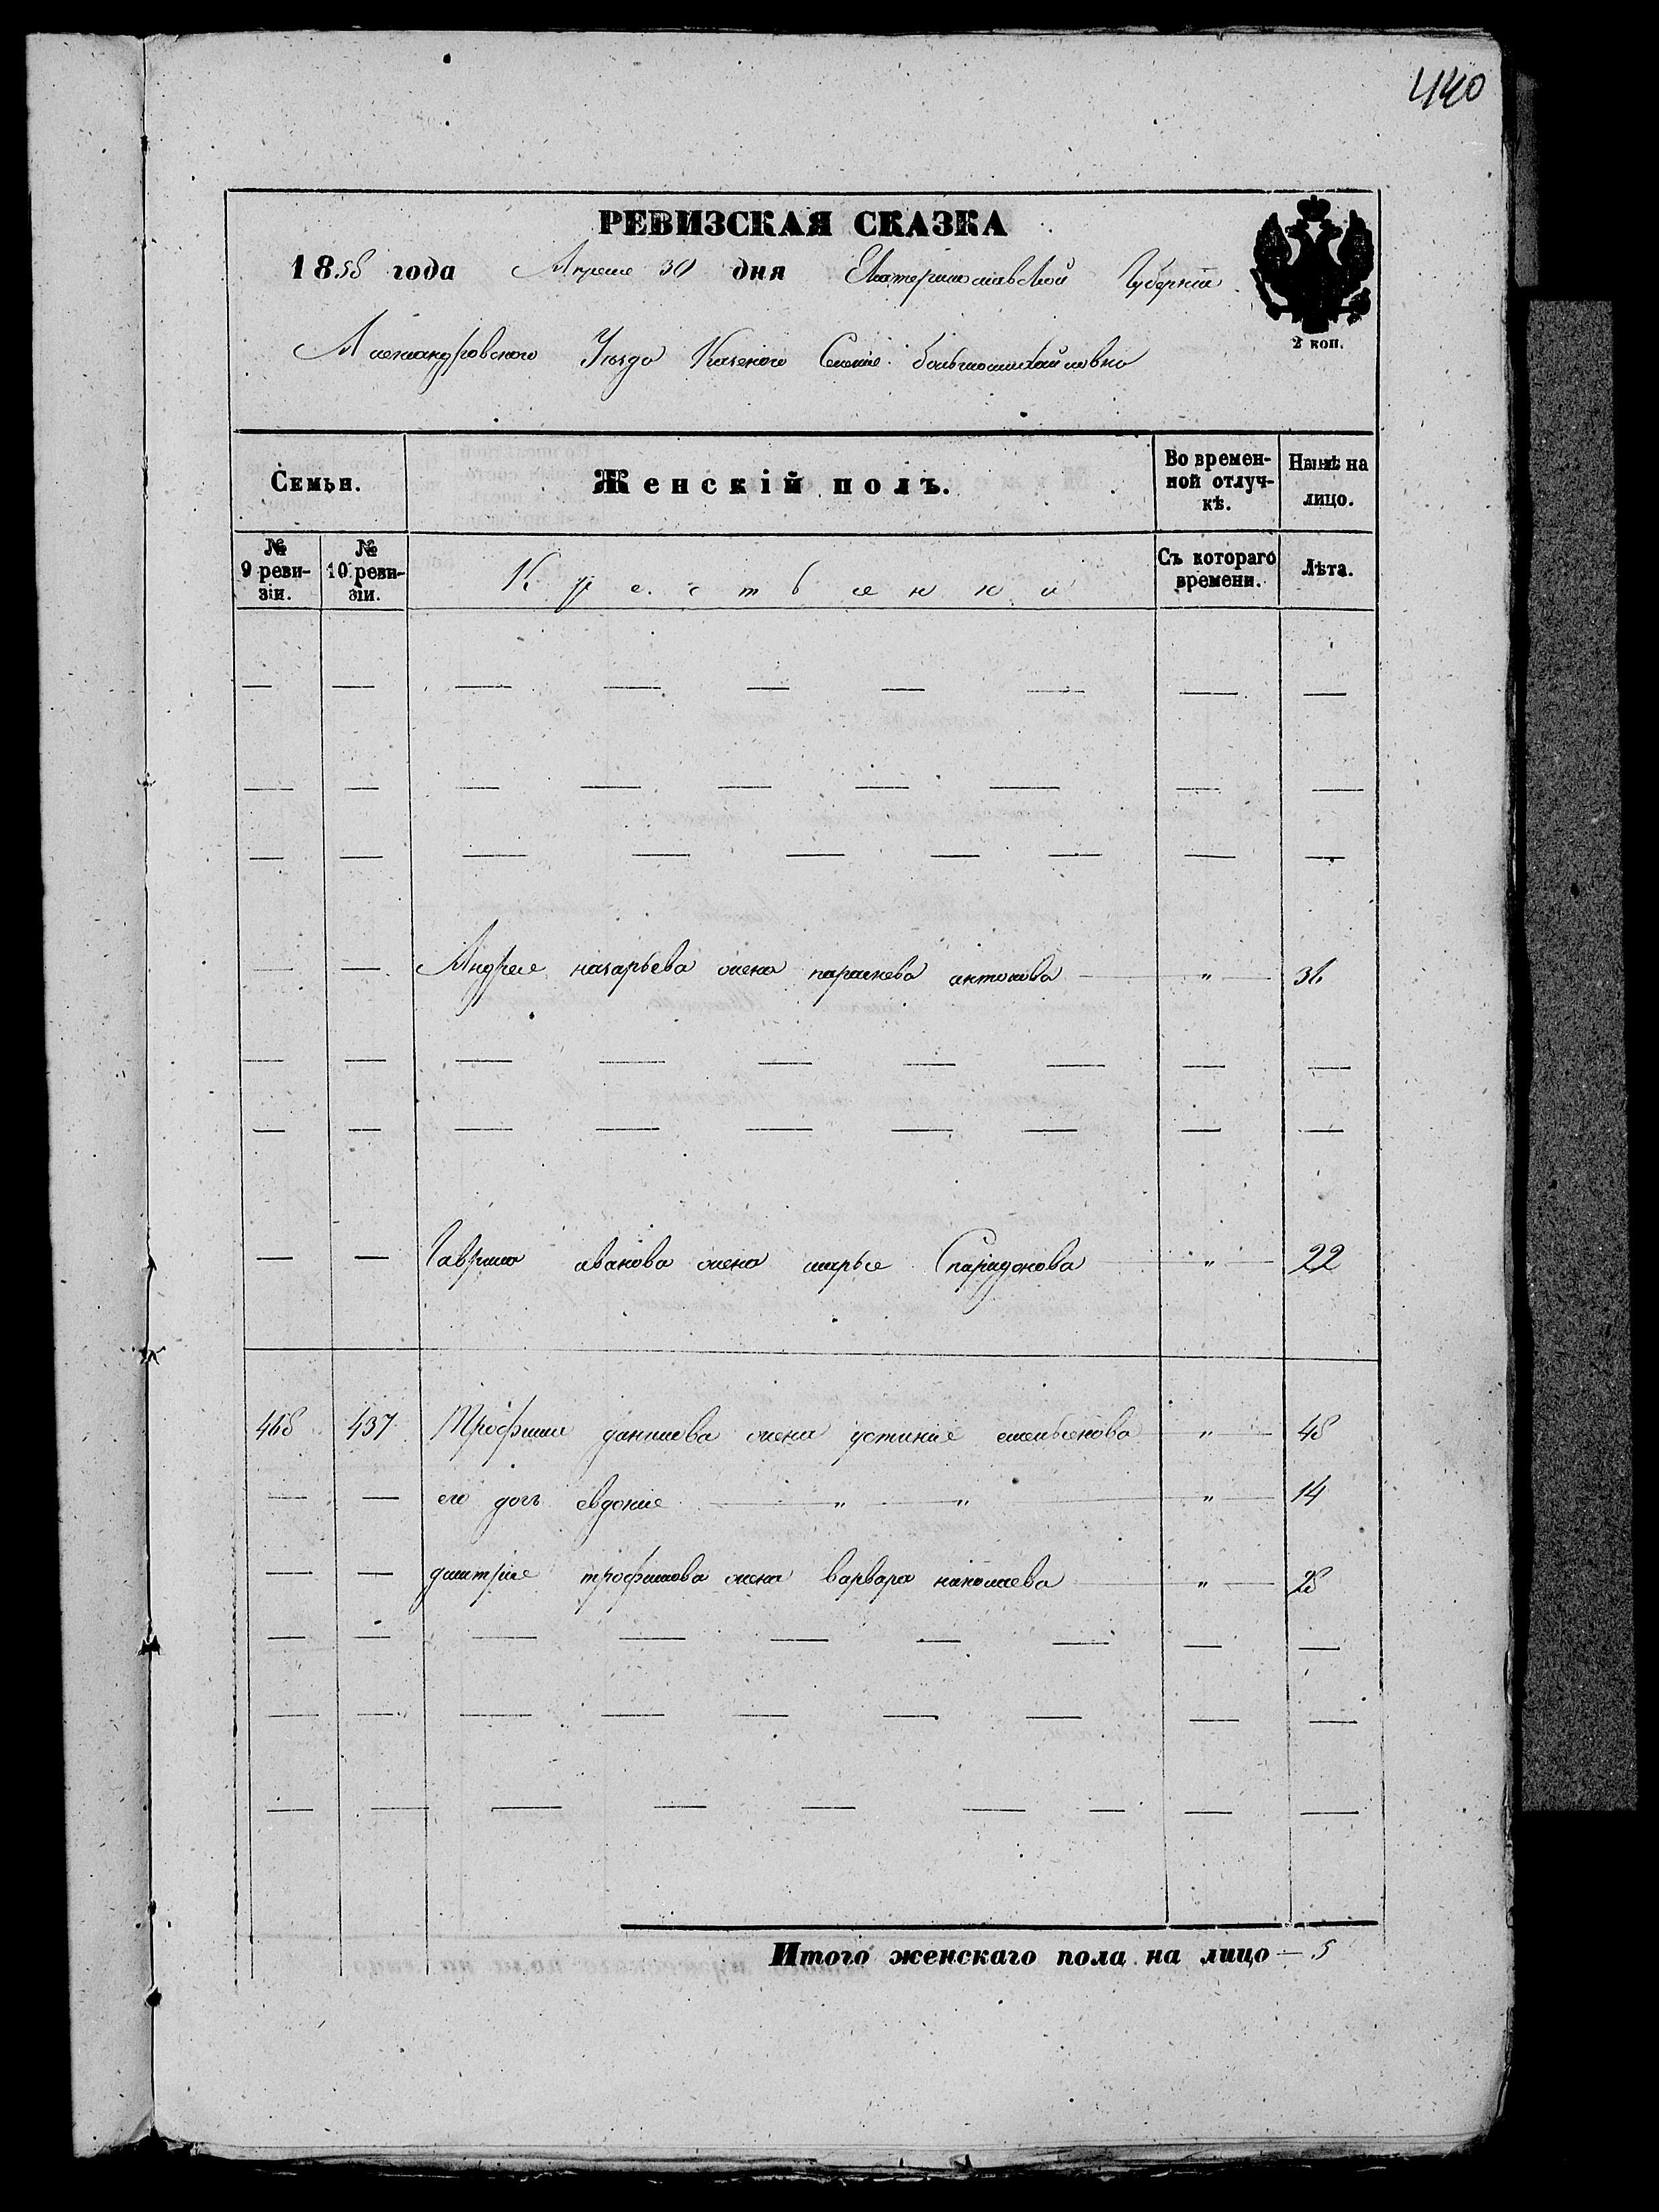 440
РЕВИЗСКАЯ СКАЗКА
1858 года Апреля 30 дня Екатеринославской Губернии
2 коп.
Александровского Уезда Казеного Селение большомихайловка
Семьи. Женскій полъ. Во времен-ной отлуч-кѣ. Нынѣ на лицо.
№ 9 реви-зіи. № 10 реви-зіи. Крестьенки Съ котораго времени. Лѣта.
— — — — — — — — —
— — — — — — — — —
— — — — — — — — —
— — Андрея назарьева жена параскева антонова — " — 36
— — — — — — — — —
— — — — — — — — —
— — Гаврила иванова жена марья Спиридонова — " — 22
468 437 Трофима данилова жена устиние емельенова — " — 48
— — его дочь евдокие — " — " — " — 14
— — дмитрие трофимова жена варвара николаева — " — 28
— — — — — — — — —
— — — — — — — — —
— — — — — — — — —
Итого женскаго пола на лицо — 5